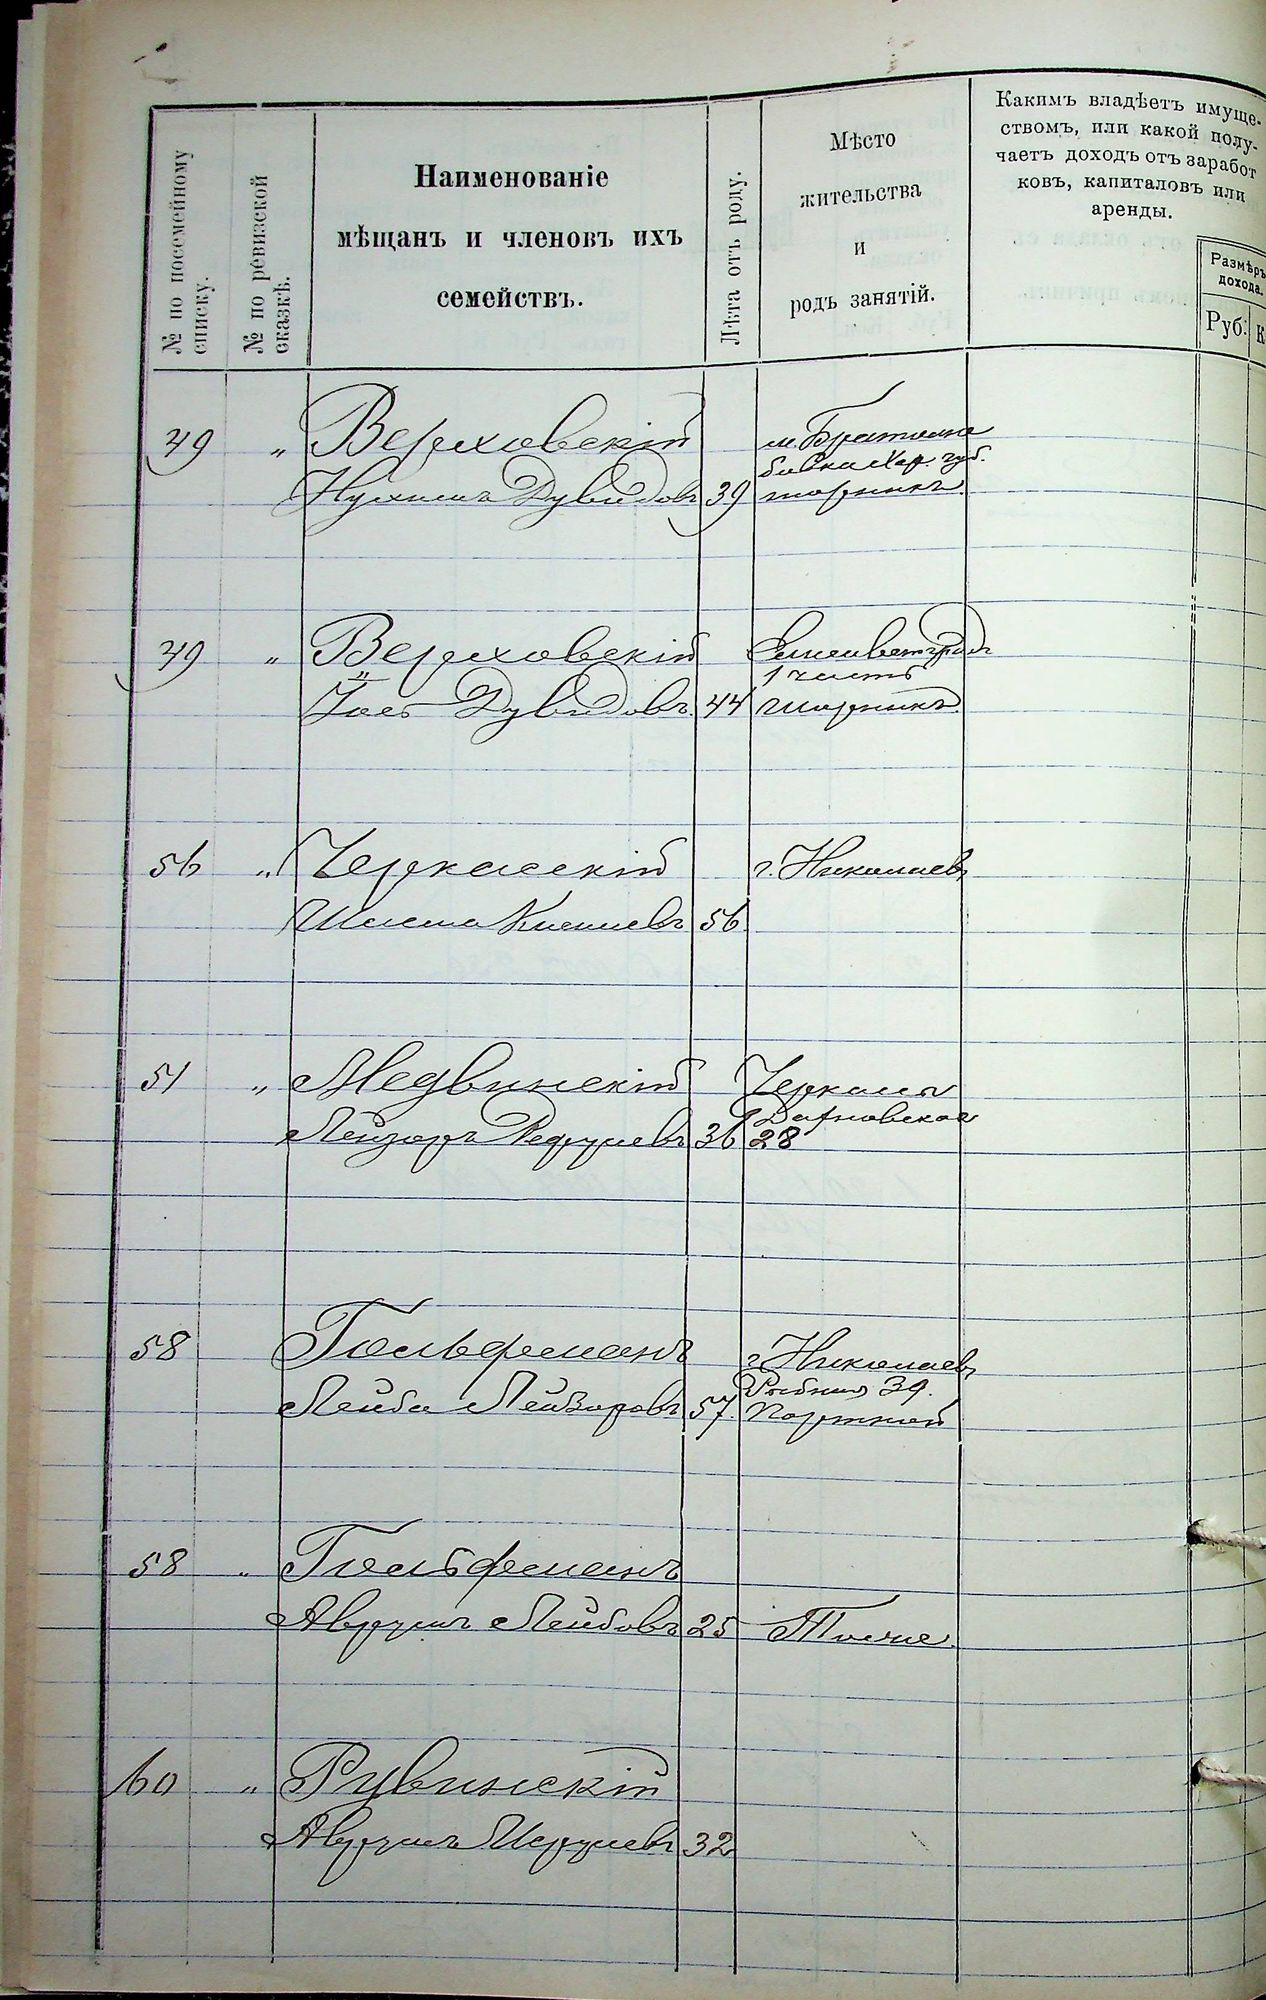 № по посемейному списку.
№ по ревизской сказкѣ.
Наименованіе
мѣщанъ и членовъ ихъ
семействъ.
Лѣта отъ роду.
Мѣсто
жительства
и
родъ занятій.
Какимъ владѣетъ имуще-
ствомъ, или какой полу-
чаетъ доходъ отъ заработ
ковъ, капиталовъ или
аренды.
Размѣръ
дохода.
Руб. К
49 „ Верховскій
Нухимъ Дувидовъ 39
м. Братолю
бовка Хер. губ.
шорникъ
49 „ Верховскій
Іось Дувидовъ 44
Елисаветградъ
1 часть
шорникъ
56 „ Черкасскій
56
г. Николаевъ
51 „ Медвинскій
Лейзоръ 36
Черкассы
28
58 Гольфманъ
Лейба Лейзоровъ 57
г. Николаевъ
Рыбная 39.
Портной
58 „ Гольфманъ
Аврумъ Лейбовъ 25 Тоже
60 „ Рувинскій
Аврумъ 32